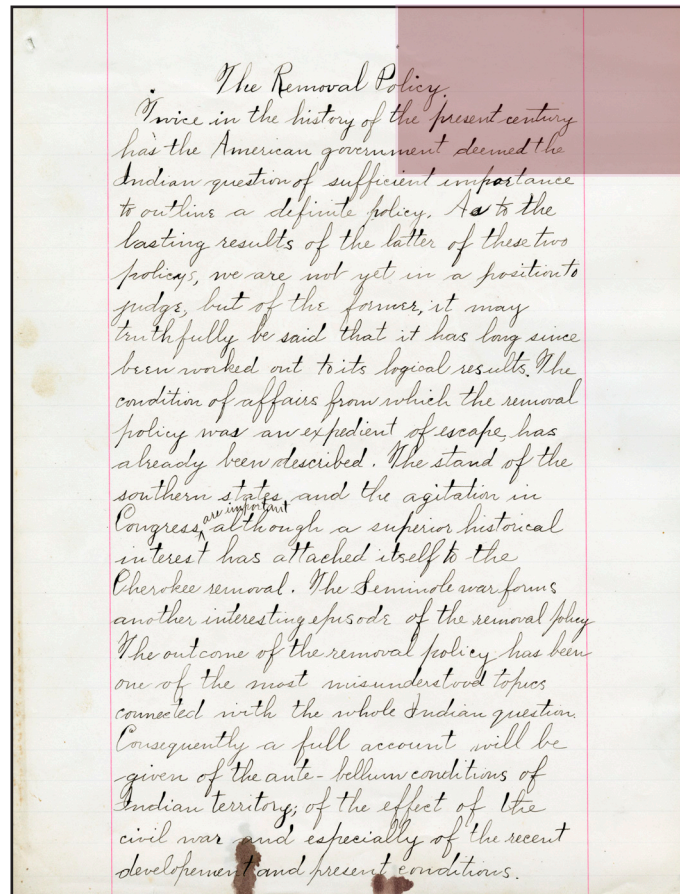 The Removal Policy.
Twice in the history of the present century
has the American government deemed the
Indian question of sufficient importance
to outline a definite policy. As to the
lasting results of the latter of these two
policys, we are not yet in a position to
judge, but of the former, it may
truthfully be said that it has long since
been worked out to its logical results. The
condition of affairs from which the removal
policy was an expedient of escape, has
already been described. The stand of the
southern states and the agitation in
are important
Congress, although a superior historical
interest has attached itself to the
Cherokee removal. The Seminole war forms
another interesting episode of the removal policy
The outcome of the removal policy has been
one of the most misunderstood topics
connected with the whole Indian question.
Consequently a full account will be
given of the ante-bellum conditions of
Indian territory; of the effect of the
civil war and especially of the recent
developement and present conditions.